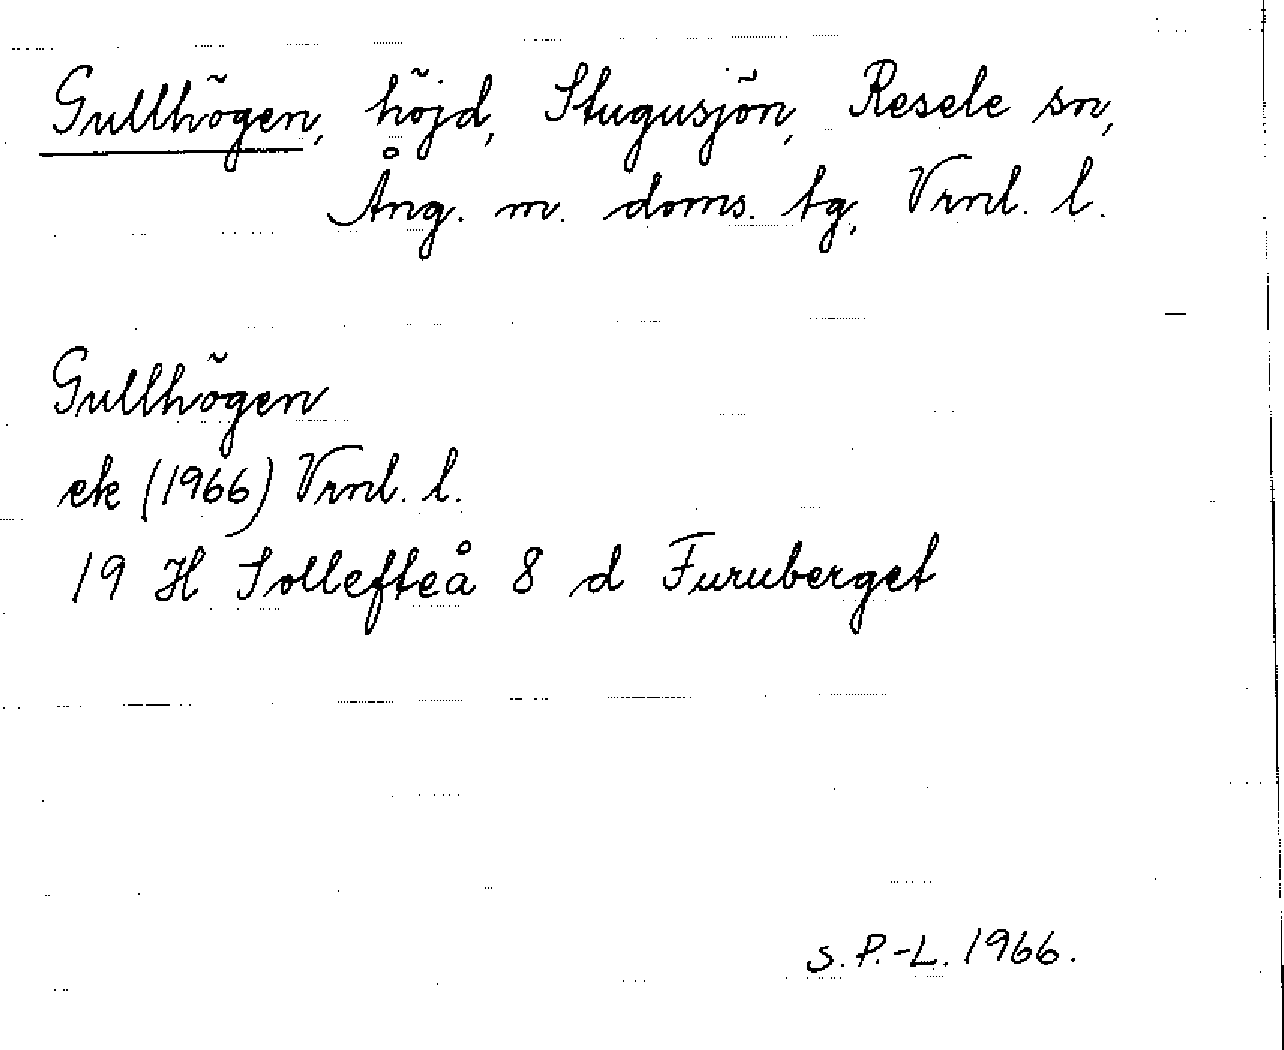 Gullhögen, höjd, Stugusjön, Resele sn,
Ång. m. doms. tg, Vrml. l.
Gullhögen
ek (1966) Vrml. l.
19 H Sollefteå 8 d Furuberget
S. P.-L. 1966.